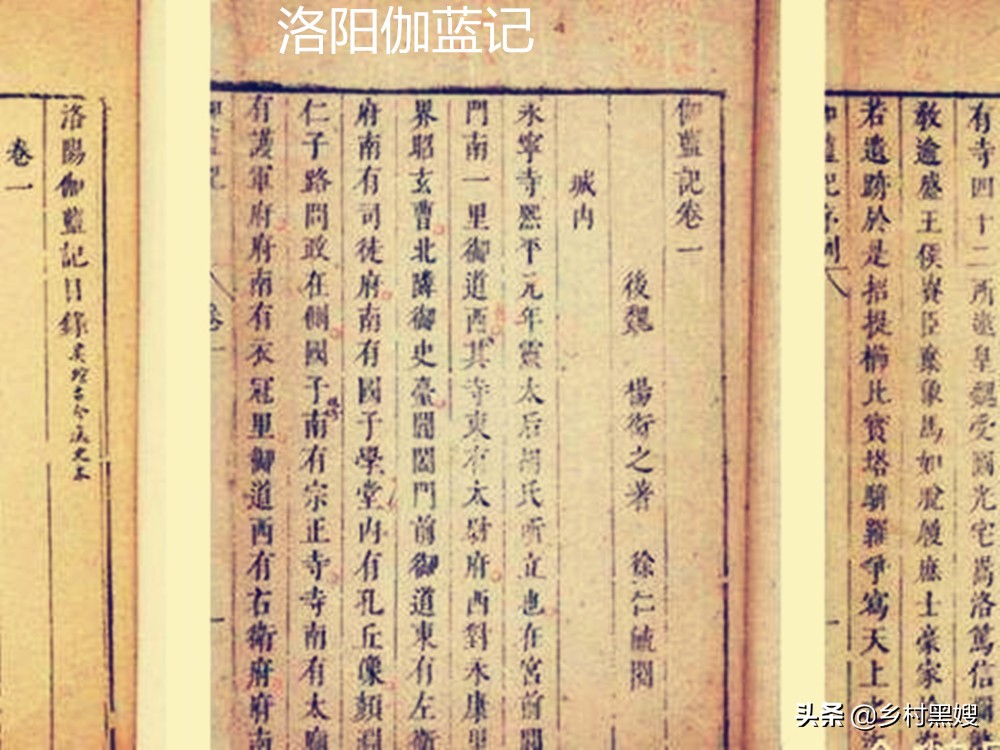 洛阳伽蓝记
有寺四十二所逮皇魏受圖光宅嵩洛篤信彌繁
敎逾盛王侯貴臣棄象馬如脫屣庶士豪家
若遺跡於是招提櫛比寶塔駢羅爭寫天上
伽藍記序
伽藍記卷一
後魏 楊衒之著 徐仁毓閱
城内
永寧寺熙平元年靈太后胡氏所立也在宮前閶
門南一里御道西其寺東有太尉府西對永康里
界昭玄曹北隣御史臺閶闔門前御道東有左衛
府南有司徒府南有國子學堂内有孔丘像顏淵
仁子路問政在側國子南有宗正寺寺南有太廟
有護軍府府南有衣冠里御道西有右衛府府南
伽藍記 卷一
洛陽伽藍記目錄
卷一
头条 @乡村黑嫂